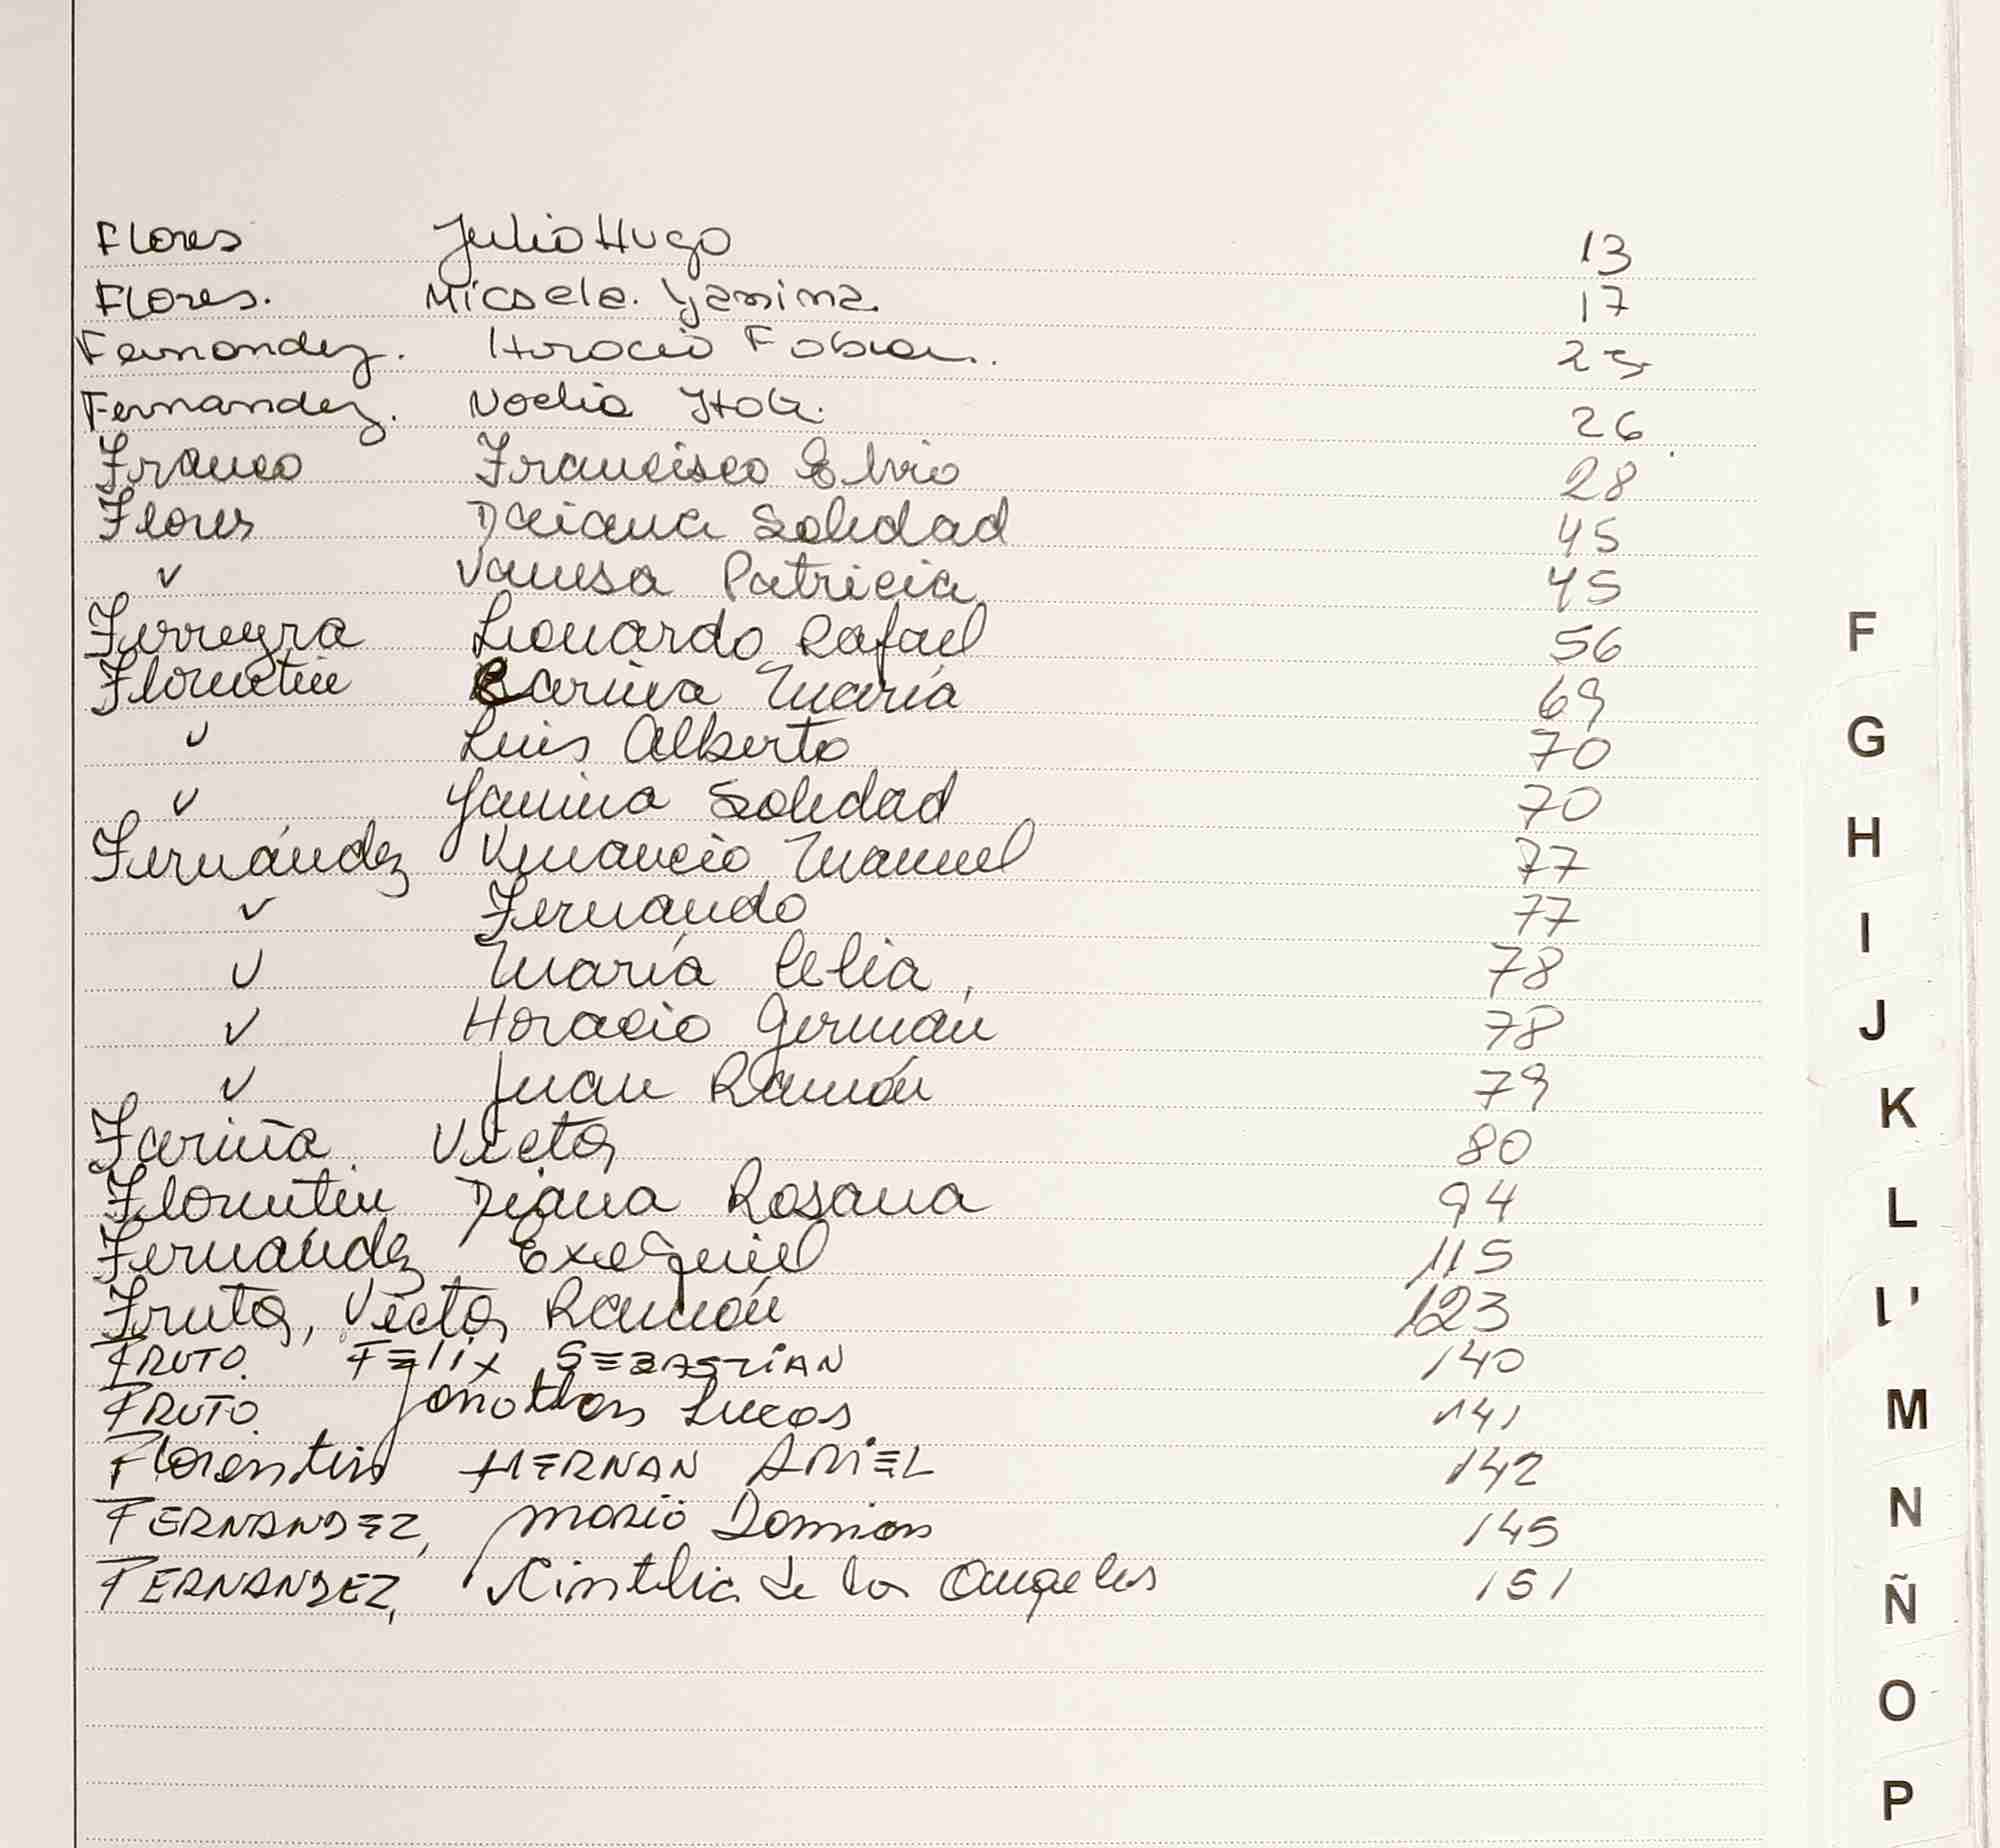 Flores Julio Hugo 13
Flores. Micaela. Yanina. 17
Fernandez. Horacio Fabian. 25
Fernandez. Noelia Itatí. 26
Franco Francisco Elvio 28
Flores Daiana Soledad 45
v Vanesa Patricia 45
Ferreyra Leonardo Rafael 56
Florentin Carina María 69
v Luis Alberto 70
v Yanina Soledad 70
Fernández Venancio Manuel 77
v Fernando 77
v María Celia, 78
v Horacio Germán 78
v Juan Ramón 79
Fariña Victor 80
Florentin Diana Rosana 94
Fernández Exequiel 115
Frutos, Victor Ramón 123
FRUTO. FELIX SEBASTIAN 140
FRUTO. Jonathan Lucas 141
Florentin HERNAN ARIEL 142
FERNANDEZ, Mario Damian 145
FERNANDEZ, Cinthia de los Angeles 151
F
G
H
I
J
K
L
M
N
Ñ
O
P